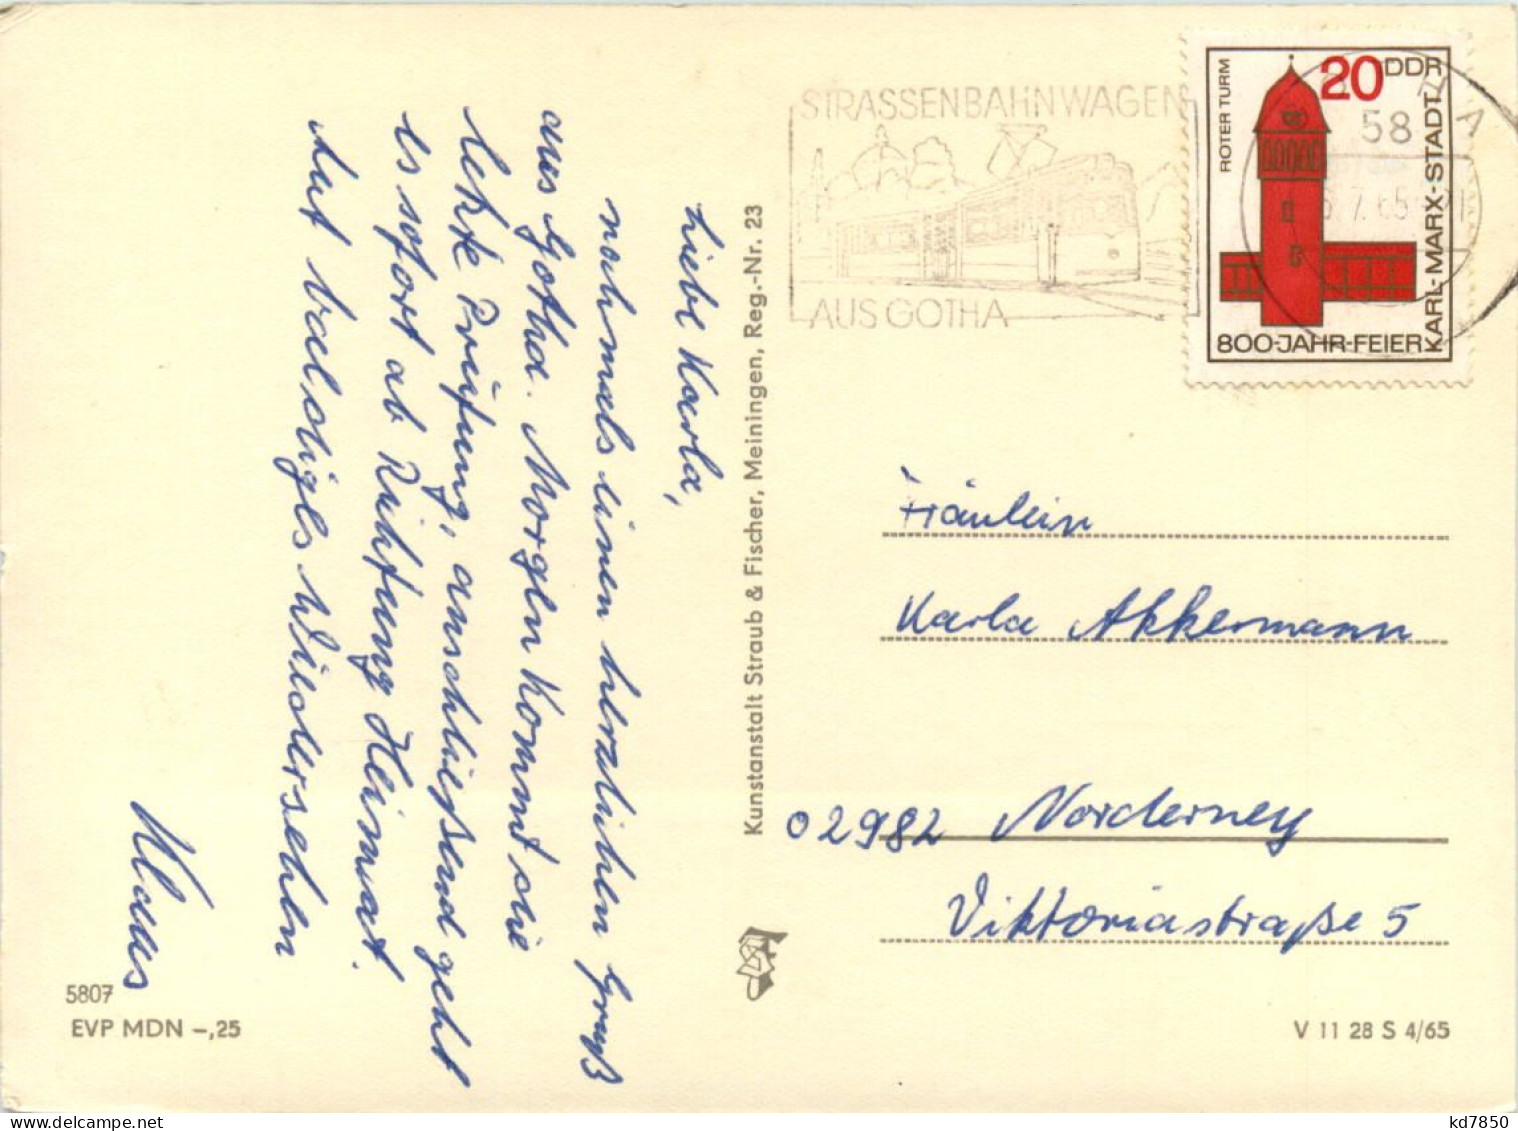 Liebe Karla,
nochmals einen herzlichen Gruß
aus Gotha. Morgen kommt die
letzte Prüfung, anschließend geht
es sofort ab Richtung Heimat.
Auf baldiges Wiedersehen
Klaus
5807
EVP MDN –,25
Kunstanstalt Straub & Fischer, Meiningen, Reg.-Nr. 23
STRASSENBAHNWAGEN
AUS GOTHA
ROTER TURM
20 DDR
KARL-MARX-STADT
800-JAHR-FEIER
58
7.65
Fräulein
Karla Akkermann
02982 Norderney
Viktoriastraße 5
V 11 28 S 4/65
kd7850